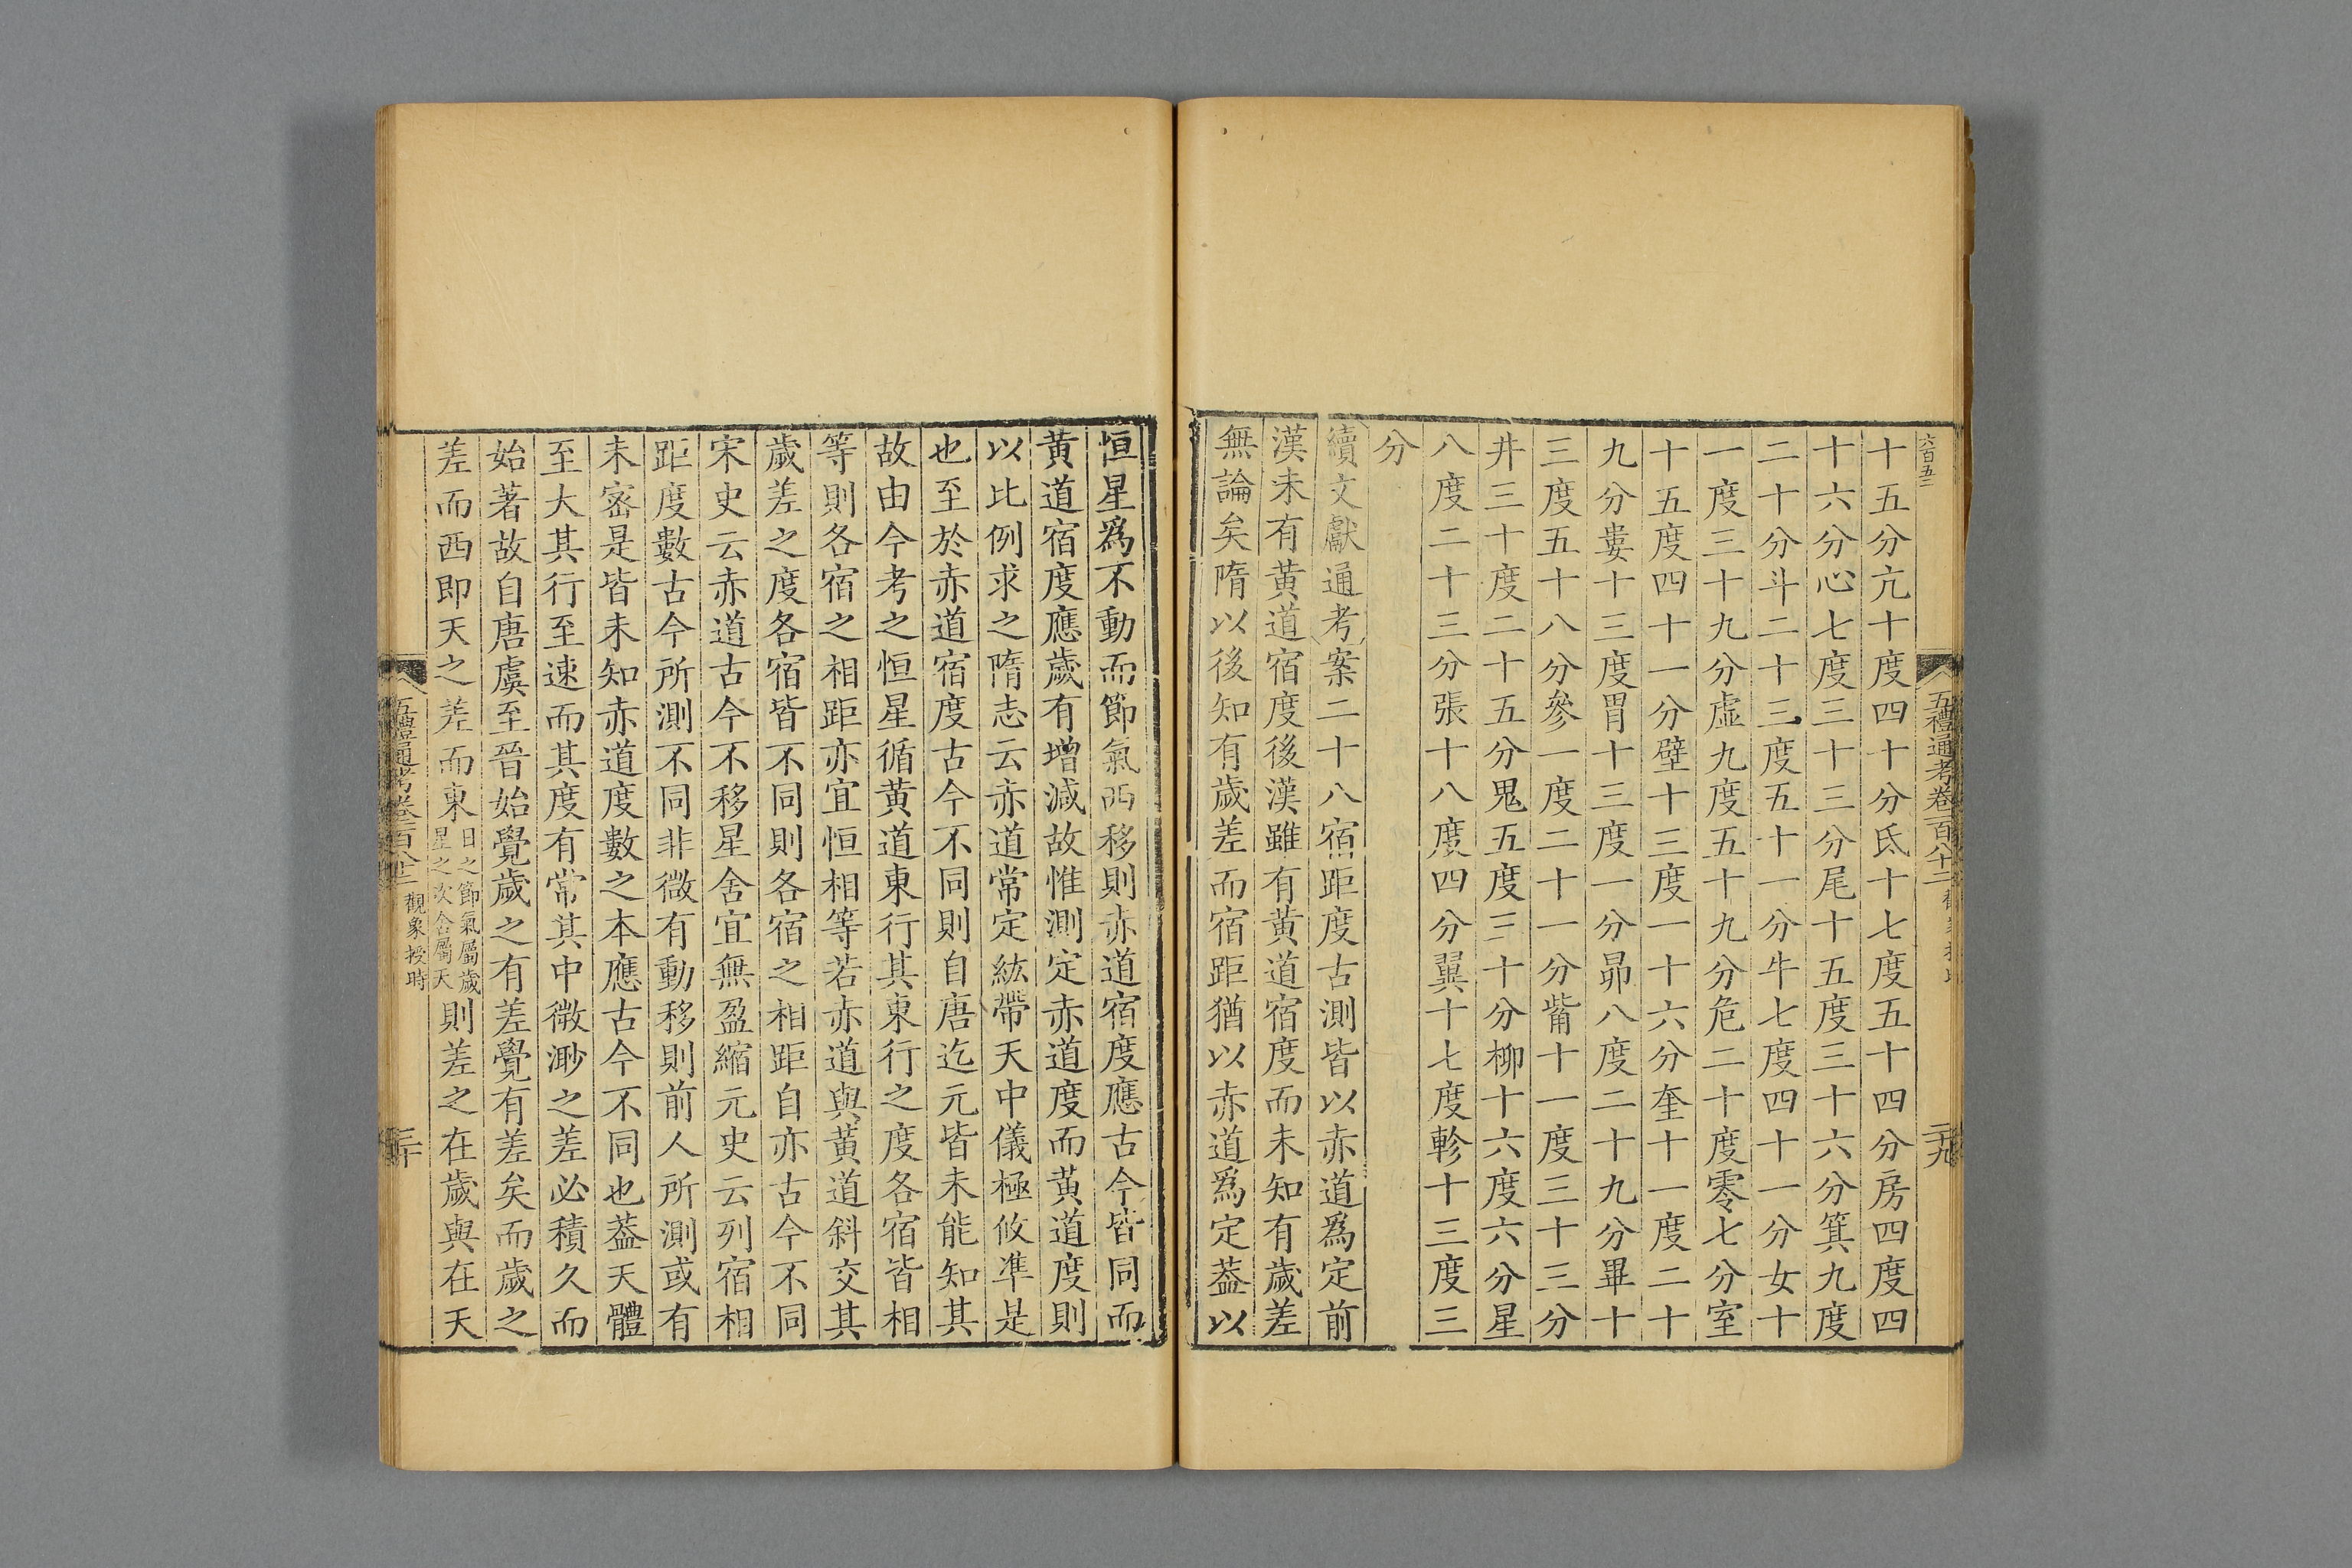 六百五二
五禮通考卷一百八十二
二十九
十五分亢十度四十分氐十七度五十四分房四度四
十六分心七度三十三分尾十五度三十六分箕九度
二十分斗二十三度五十一分牛七度四十一分女十
一度三十九分虛九度五十九分危二十度零七分室
十五度四十一分壁十三度一十六分奎十一度二十
九分婁十三度胃十三度一分昴八度二十九分畢十
三度五十八分參一度二十一分觜十一度三十三分
井三十度二十五分鬼五度三十分柳十六度六分星
八度二十三分張十八度四分翼十七度軫十三度三
分
續文獻通考案二十八宿距度古測皆以赤道爲定前
漢未有黃道宿度後漢雖有黃道宿度而未知有歲差
無論矣隋以後知有歲差而宿距猶以赤道爲定葢以
恒星爲不動而節氣西移則赤道宿度應古今皆同而
黃道宿度應歲有增減故惟測定赤道度而黃道度則
以比例求之隋志云赤道常定紘帶天中儀極攸準是
也至於赤道宿度古今不同則自唐迄元皆未能知其
故由今考之恒星循黃道東行其東行之度各宿皆相
等則各宿之相距亦宜恒相等若赤道與黃道斜交其
歲差之度各宿皆不同則各宿之相距自亦古今不同
宋史云赤道古今不移星舍宜無盈縮元史云列宿相
距度數古今所測不同非微有動移則前人所測或有
未密是皆未知赤道度數之本應古今不同也葢天體
至大其行至速而其度有常其中微渺之差必積久而
始著故自唐虞至晉始覺歲之有差覺有差矣而歲之
差而西即天之差而東日之節氣屬歲星之次舍屬天則差之在歲與在天
五禮通考卷一百八十二 觀象授時
三十